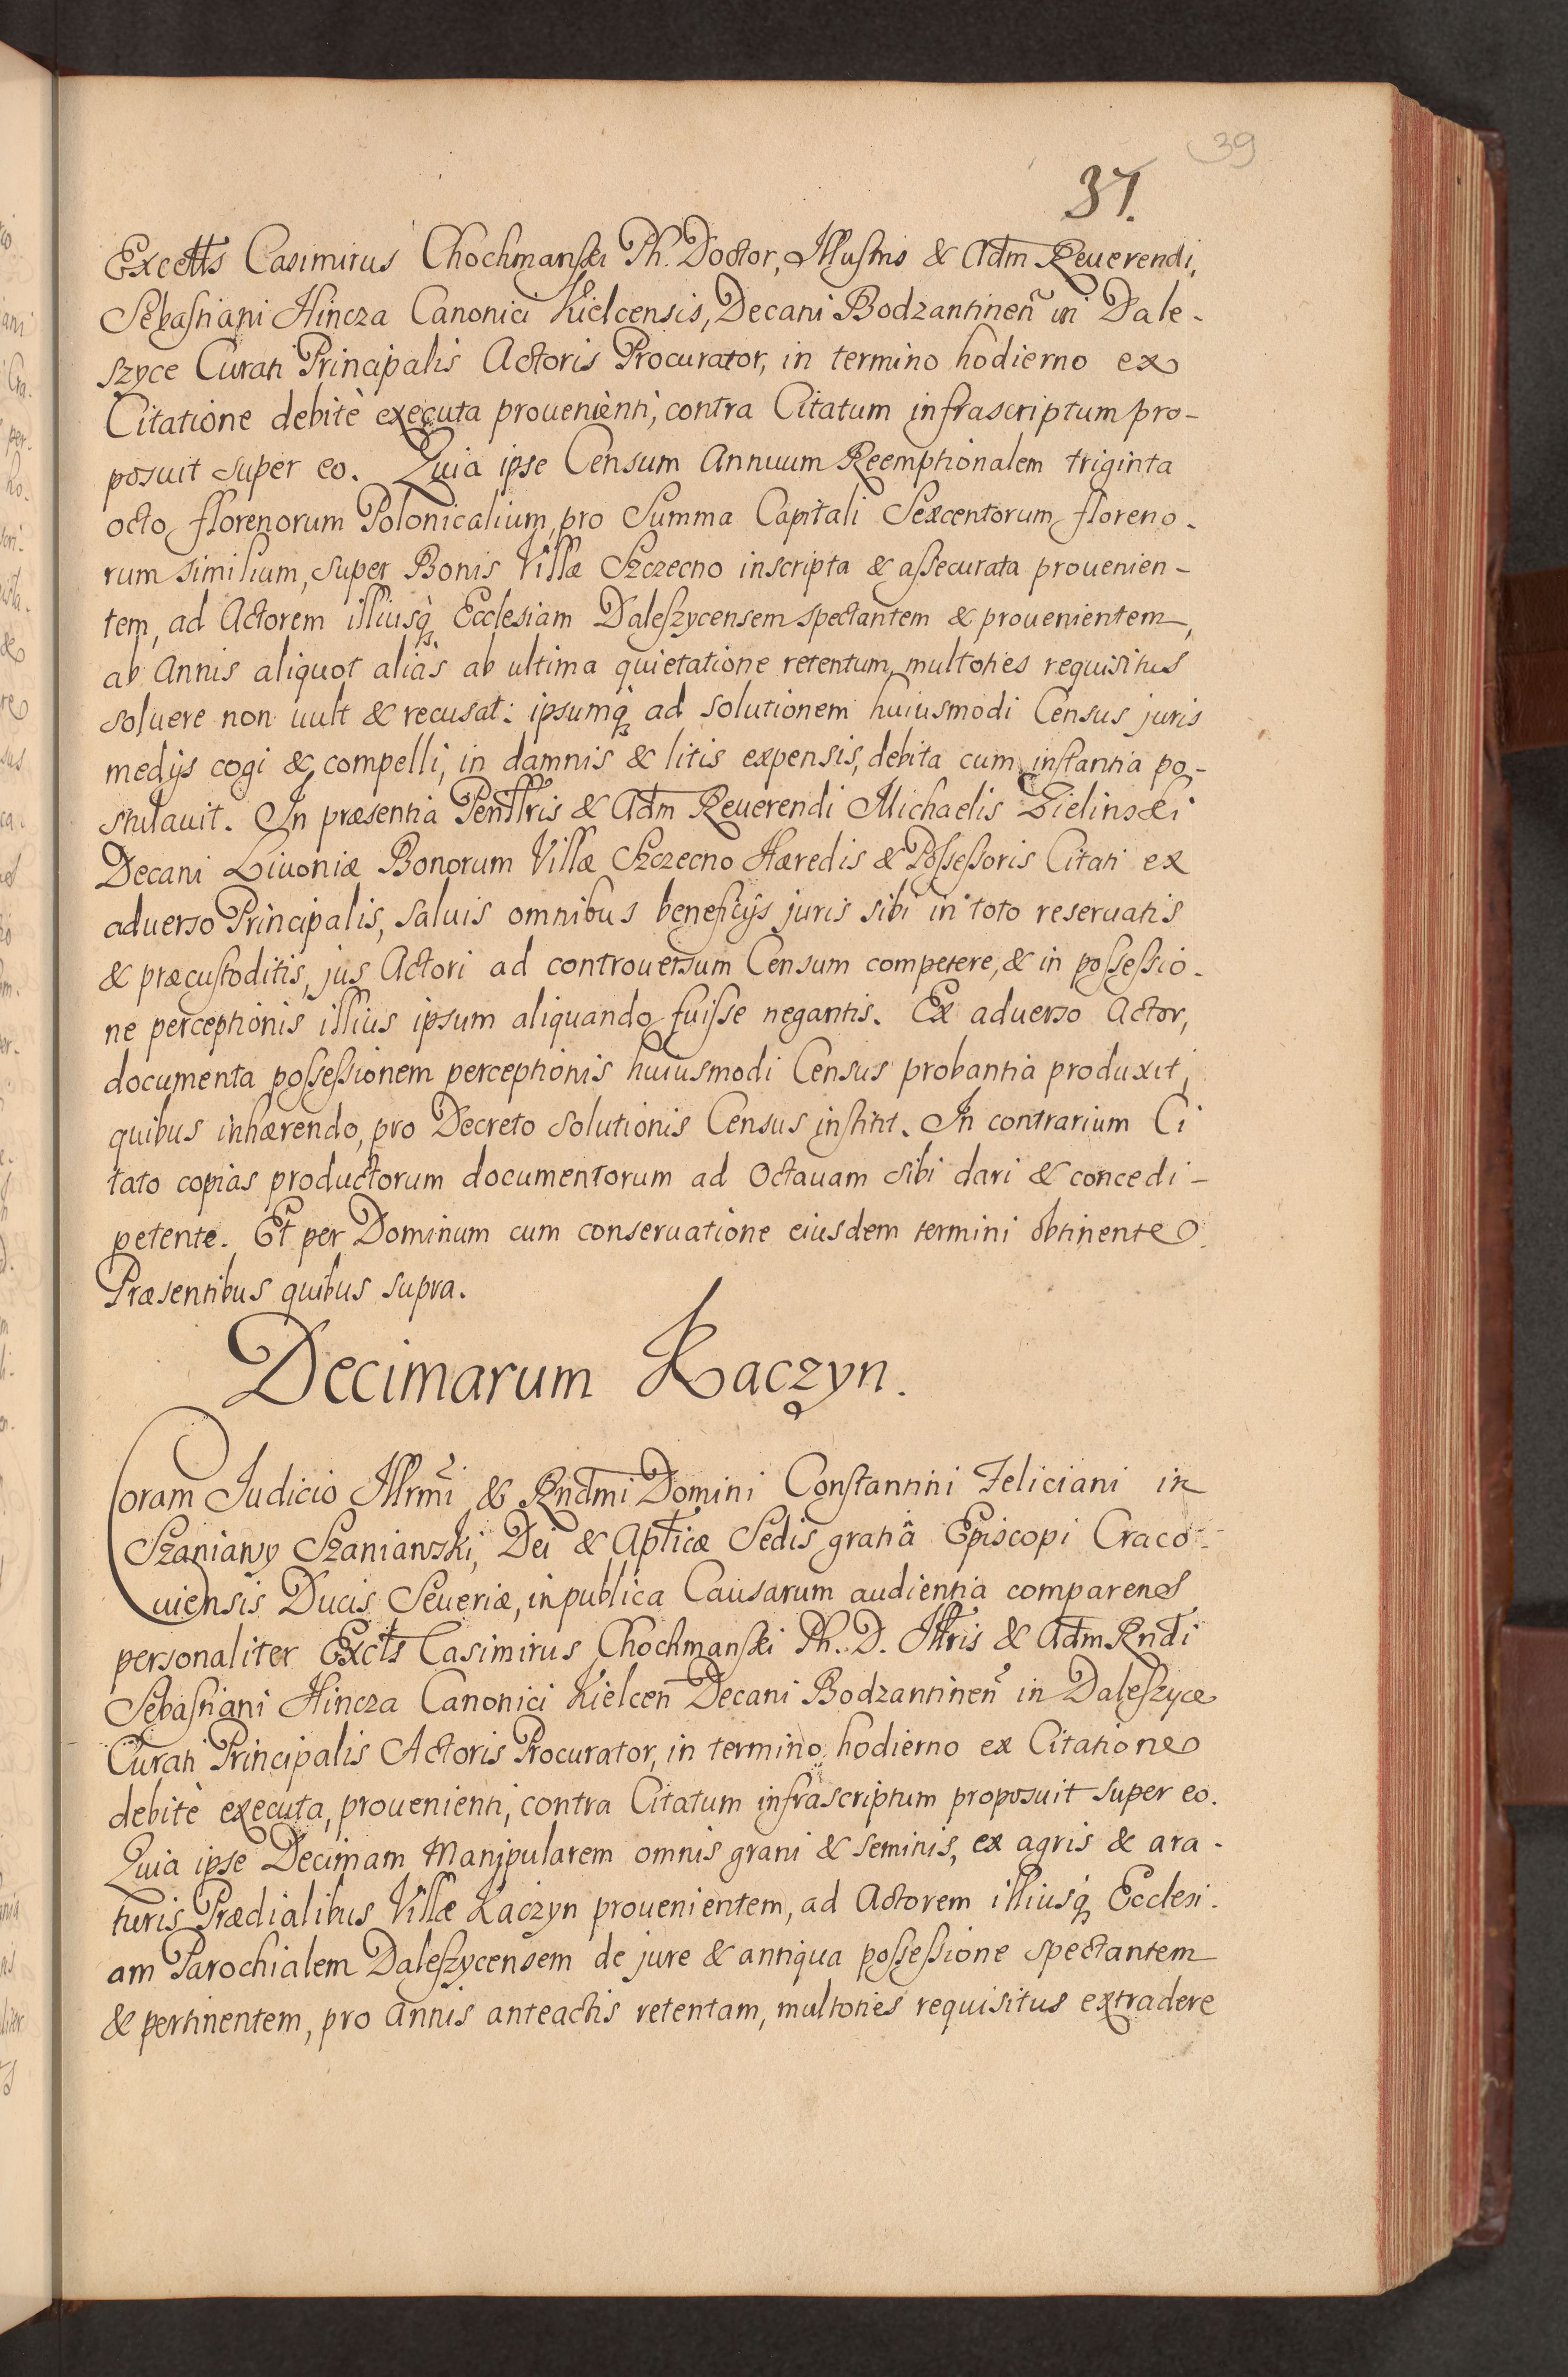 39
37.
Excetts Casimirus Chochmanski Ph. Doctor, Illustris & Adm Reuerendi,
Sebastiani Hincza Canonici Kielcensis, Decani Bodzantinen̄ in Dale-
szyce Curati Principalis Actoris Procurator, in termino hodierno ex
Citatione debitè executa prouenienti, contra Citatum infrascriptum pro-
posuit super eo. Quia ipse Censum Annuum Reemptionalem triginta
octo florenorum Polonicalium, pro Summa Capitali Sexcentorum floreno-
rum similium, super Bonis Villæ Szczecno inscripta & assecurata prouenien-
tem, ad Actorem illiusq̀ Ecclesiam Daleszycensem spectantem & prouenientem,
ab Annis aliquot aliàs ab ultima quietatione retentum, multoties requisitus
soluere non uult & recusat: ipsumq̀ ad solutionem huiusmodi Census juris
medijs cogi & compelli, in damnis & litis expensis, debita cum instantia po-
stulauit. In præsentia Penlltris & Adm Reuerendi Michaelis Zielinski
Decani Liuoniæ Bonorum Villæ Szczecno Hæredis & Possessoris Citati ex
aduerso Principalis, saluis omnibus beneficijs juris sibi in toto reseruatis
& præcustoditis, jus Actori ad controuersum Censum competere, & in possessio-
ne perceptionis illius ipsum aliquando fuisse negantis. Ex aduerso Actor,
documenta possessionem perceptionis huiusmodi Census probantia produxit,
quibus inhærendo, pro Decreto solutionis Census institit. In contrarium Ci
tato copias productorum documentorum ad Octauam sibi dari & concedi-
petente. Et per Dominum cum conseruatione eiusdem termini obtinente.
Præsentibus quibus supra.
Decimarum Kaczyn.
Coram Judicio Illrmi & Rndmi Domini Constantini Feliciani in
Szaniawy Szaniawski, Dei & Apticæ Sedis gratiâ Episcopi Craco-
uiensis Ducis Seueriæ, in publica Causarum audientia comparens
personaliter Excts Casimirus Chochmanski Ph. D. Illtris & Adm Rndi
Sebastiani Hincza Canonici Kielcen̄ Decani Bodzantinen̄ in Daleszyce
Curati Principalis Actoris Procurator, in termino hodierno ex Citatione
debitè executa, prouenienti, contra Citatum infrascriptum proposuit super eo.
Quia ipse Decimam Manipularem omnis grani & seminis, ex agris & ara-
turis Prædialibus Villæ Kaczyn prouenientem, ad Actorem illiusq̀ Ecclesi-
am Parochialem Daleszycensem de jure & antiqua possessione spectantem
& pertinentem, pro annis anteactis retentam, multoties requisitus extradere